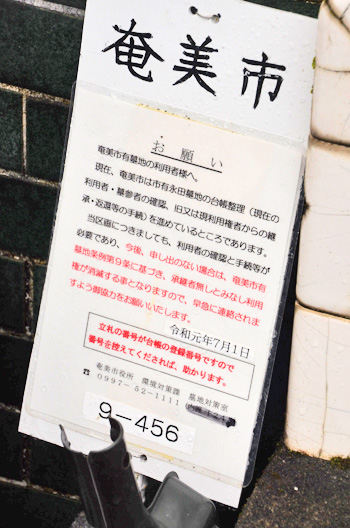 奄美市
お願い
奄美市有墓地の利用者様へ。
現在、奄美市は市有永田墓地の台帳整理（現在の
利用者・墓参者の確認、旧又は現利用権者からの継
承・返還等の手続）を進めているところであります。
当区画につきましても、利用者の確認と手続等が
必要であり、今後、申し出のない場合は、奄美市有
墓地条例第9条に基づき、承継者無しとみなし利用
権が消滅する事となりますので、早急に連絡されま
すよう御協力をお願いいたします。
令和元年7月1日
立札の番号が台帳の登録番号ですので
番号を控えてくだされば、助かります。
奄美市役所 環境対策課 墓地対策室
☎ 0997-52-1111
9-456